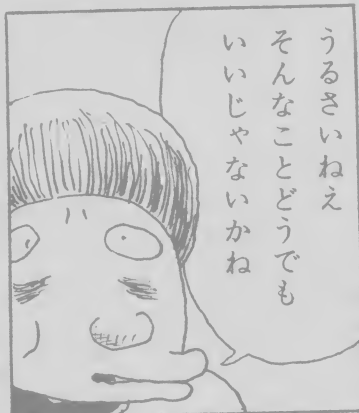 うるさいねえ
そんなことどうでも
いいじゃないかね